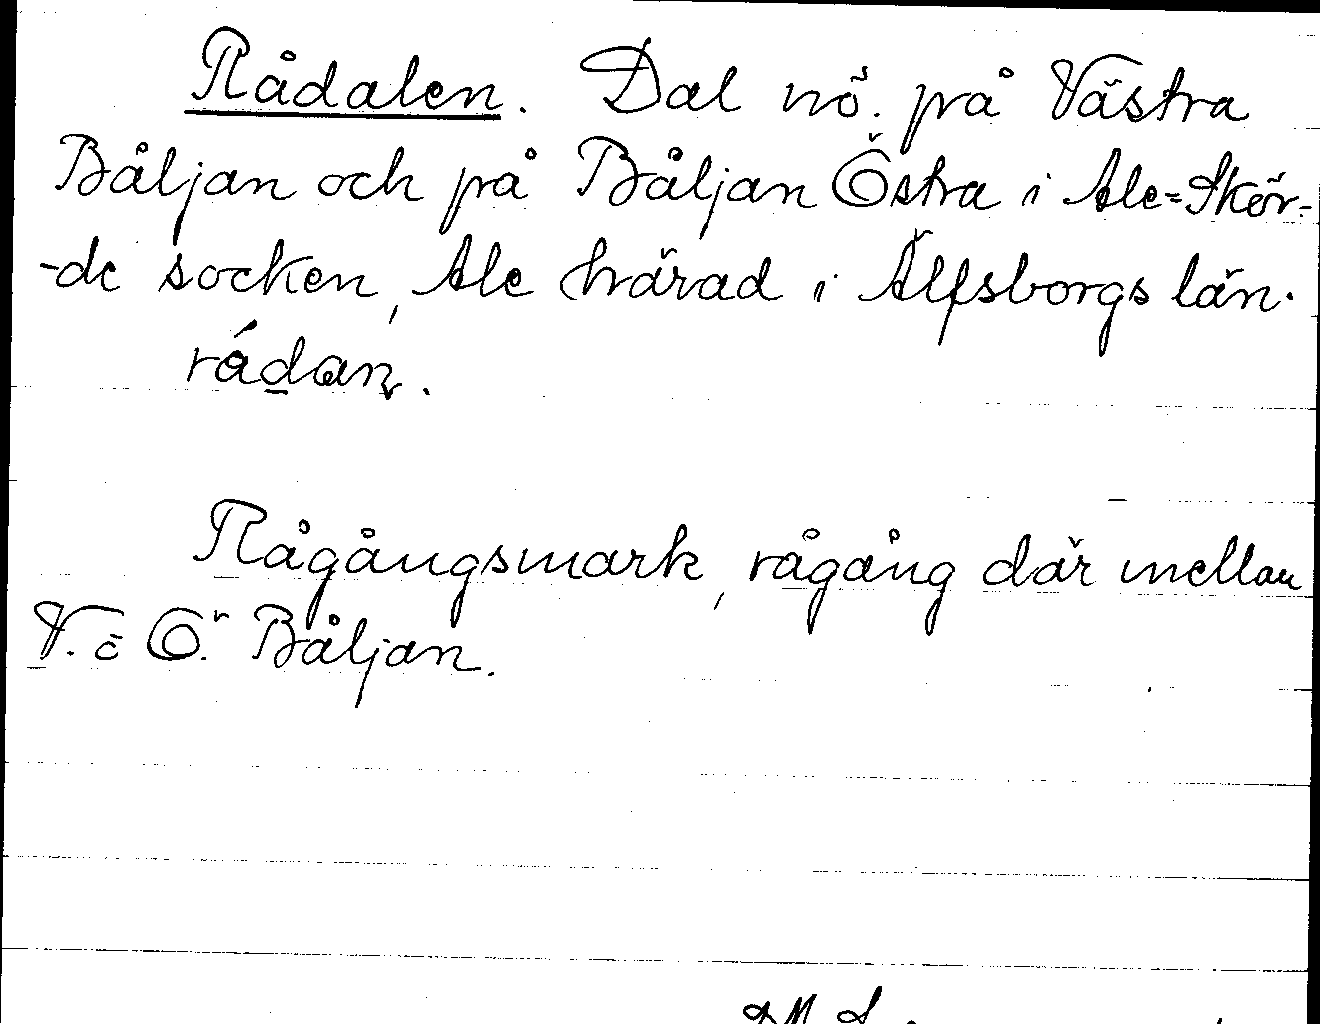 Rådalen. Dal nö. på Västra
Båljan och på Båljan Östra i Ale-Skör-
-de socken, Ale härad i Älfsborgs län.
rádan.
Rågångsmark, rågång där mellan
V. o Ö. Båljan.